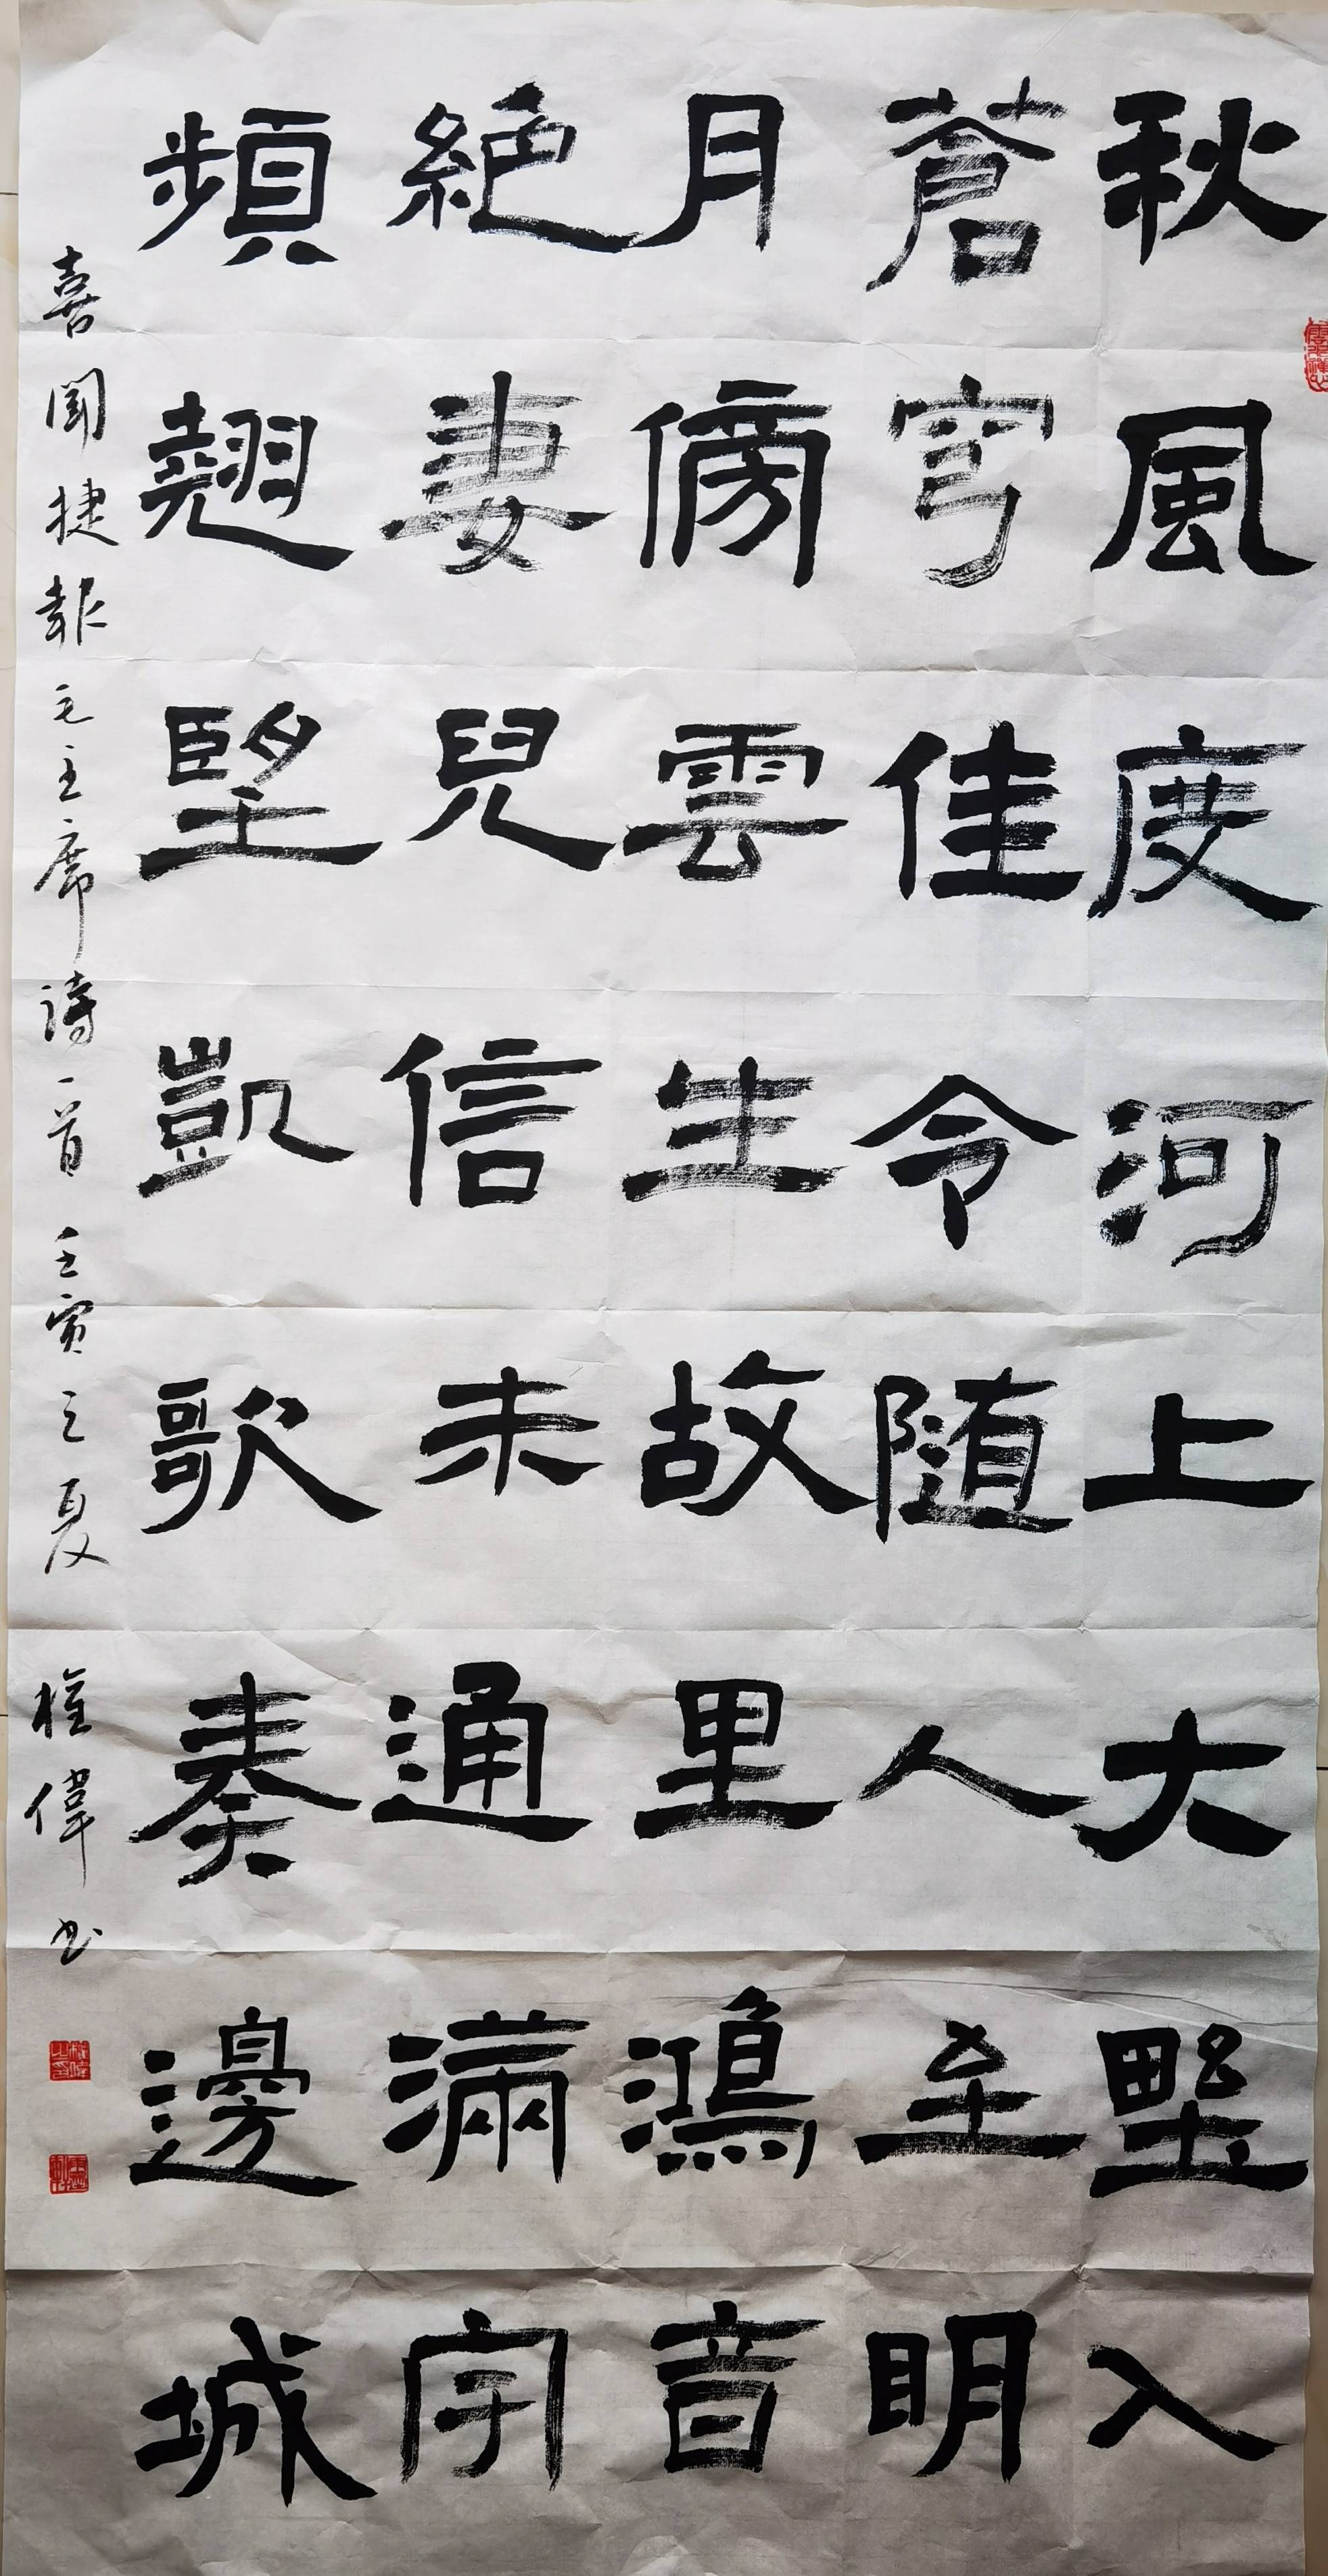 秋風度河上大埜入
蒼穹佳令随人至明
月傍雲生故里鴻音
絶妻兒信未通滿宇
頻翹望凱歌奏邊城
喜聞捷報毛主席詩一首壬寅之夏權偉书